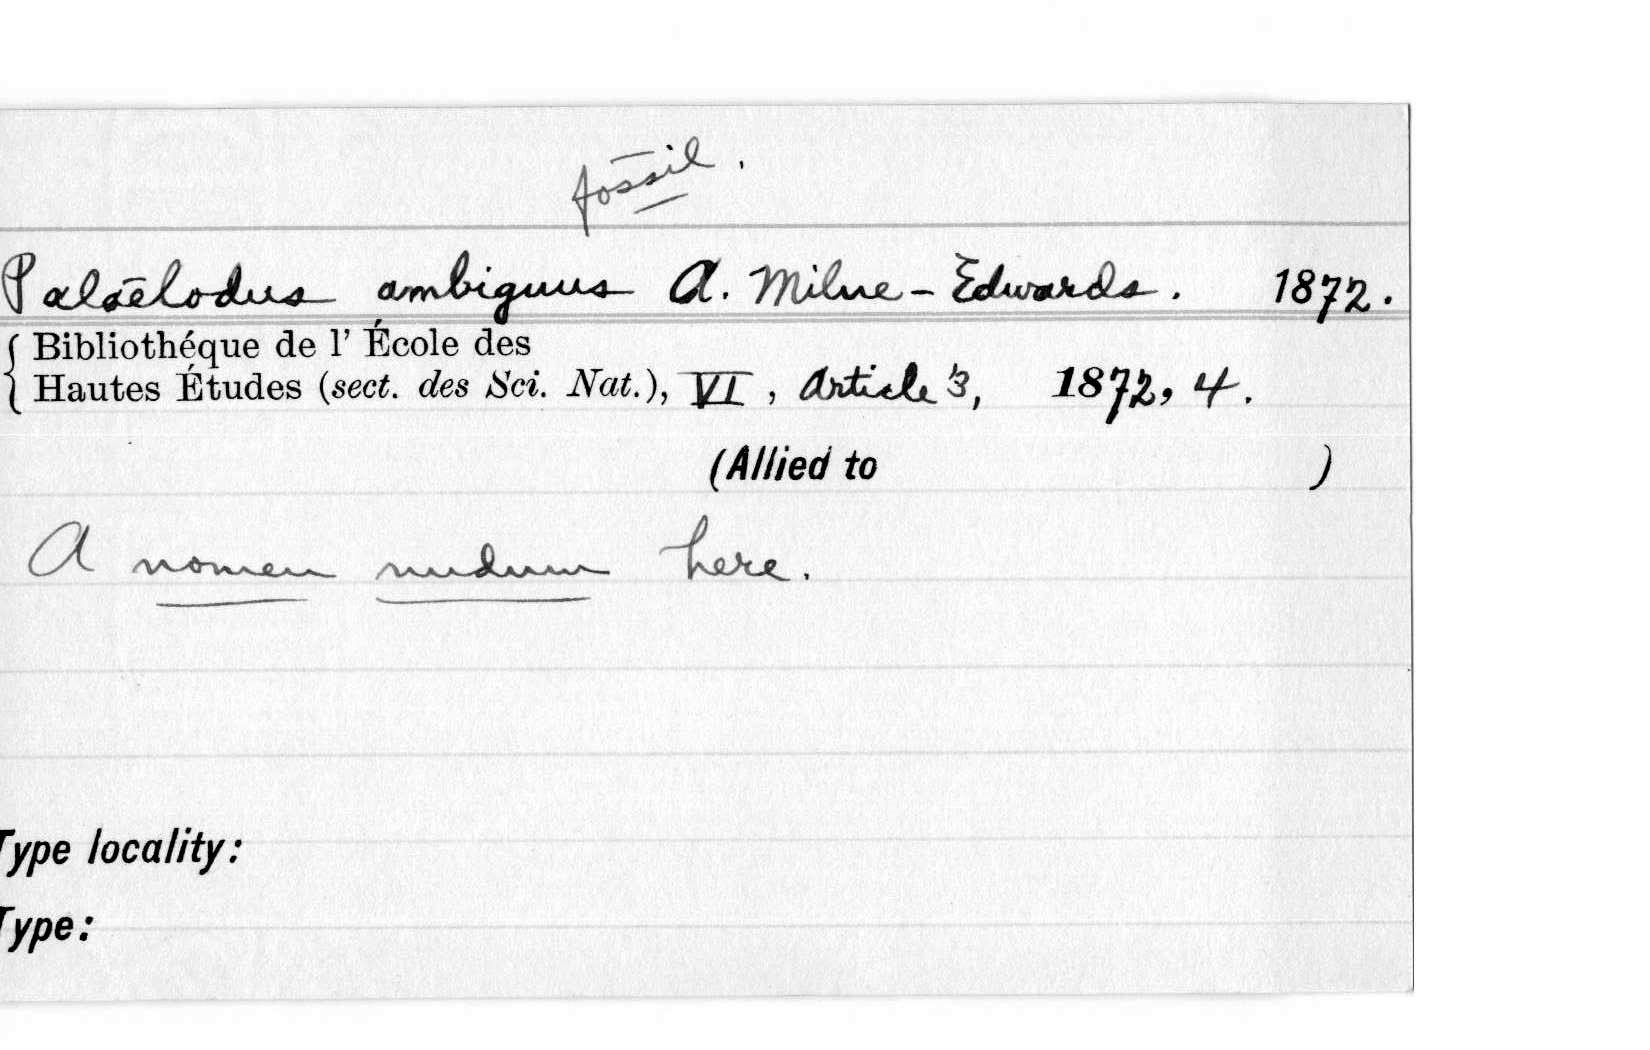 fossil.
Palaelodus ambiguus A. Milne-Edwards. 1872.
Bibliothéque de l' École des
Hautes Études (sect. des Sci. Nat.), VI, Article 3, 1872, 4.
(Allied to )
A nomen nudum here.
Type locality:
Type: